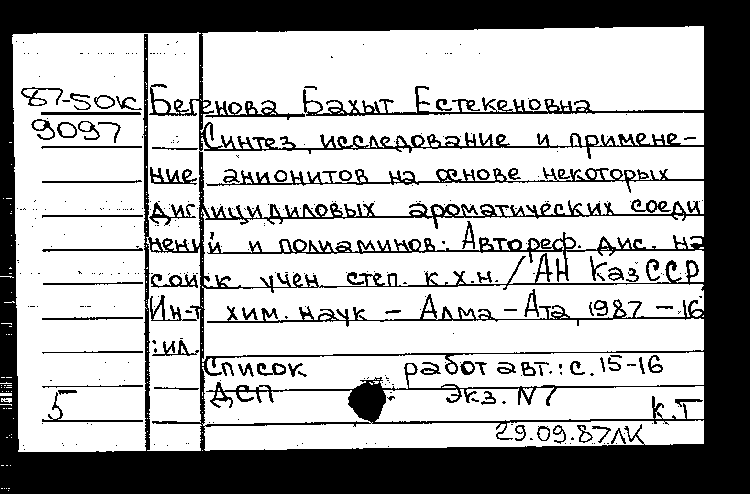 87-50К Бегенова, Бахыт Естекеновна
9097 Синтез, исследование и примене-
ние анионитов на основе некоторых
диглицидиловых ароматических соеди
нений и полиаминов: Автореф. дис. на
соиск. учен. степ. к.х.н. / АН КазССР,
Ин-т хим. наук - Алма-Ата, 1987 - 16
:ил.
Список работ авт.: с. 15-16
5 ДСП Экз. N7
К.Т
29.09.87ЛК